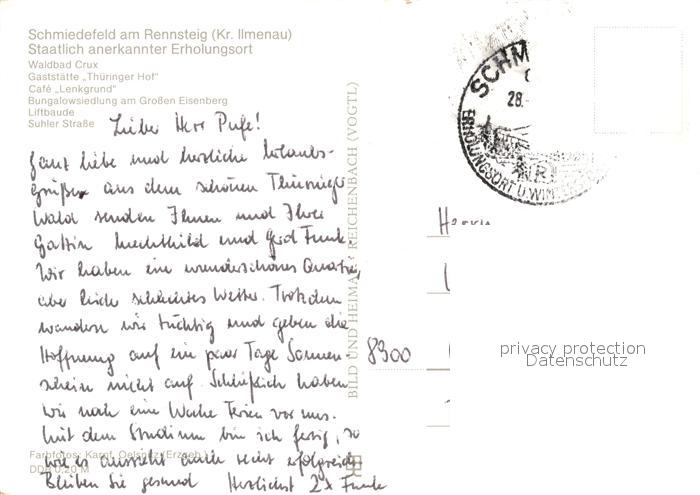 Schmiedefeld am Rennsteig (Kr. Ilmenau)
Staatlich anerkannter Erholungsort
Waldbad Crux
Gaststätte „Thüringer Hof"
Café „Lenkgrund"
Bungalowsiedlung am Großen Eisenberg
Liftbaude
Suhler Straße
Lieber Herr
Ganz liebe und herzliche Urlaubs-
grüße aus dem schönen Thüringer
Wald senden Ihnen und Ihrer
Gattin Mechthild und Gerd Funke.
Wir haben ein wunderschönes Quartier,
aber leider schlechtes Wetter. Trotzdem
wandern wir tüchtig und geben die
Hoffnung auf ein paar Tage Sonnen-
schein nicht auf. Schließlich haben
wir noch eine Woche Ferien vor uns.
Mit dem Studium bin ich fertig, so
wie es aussieht auch recht erfolgreich.
Bleiben Sie gesund Herzlichst 2x Funke
Farbfotos: Karpf, Oelsnitz (Erzgeb.)
DDR 0,20 M
BILD UND HEIMAT REICHENBACH (VOGTL)
SCHM
28.
ERHOLUNGSORT U. WINTER
8900
privacy protection
Datenschutz